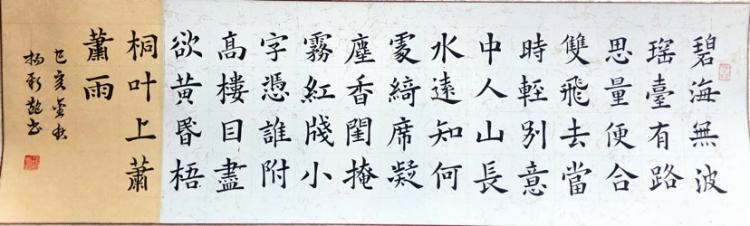 碧海無波
瑶臺有路
思量便合
雙飛去當
時輕别意
中人山長
水遠知何
處綺席凝
塵香閨掩
霧紅牋小
字憑誰附
髙樓目盡
欲黄昬梧
桐叶上蕭
蕭雨
己亥金秋
杨新书